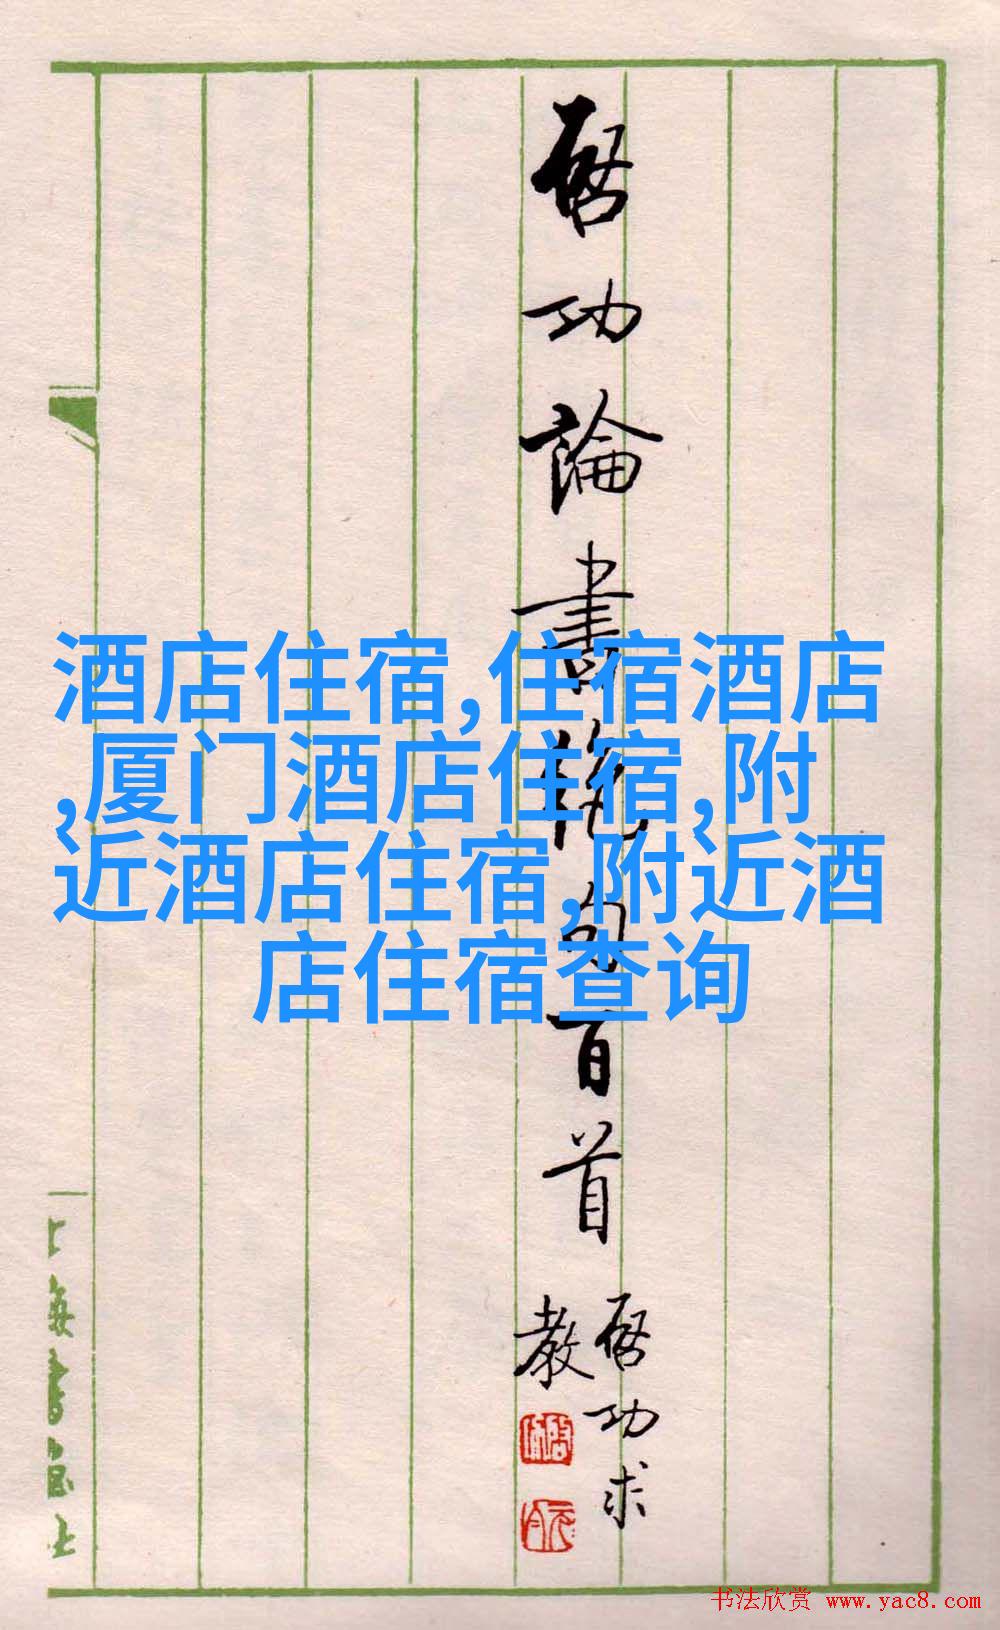 啟功論書絕句百首
啟功求
教
酒店住宿,住宿酒店
,厦门酒店住宿,附
近酒店住宿,附近酒
店住宿查询
上海書画社
书法欣赏 www.yac8.com